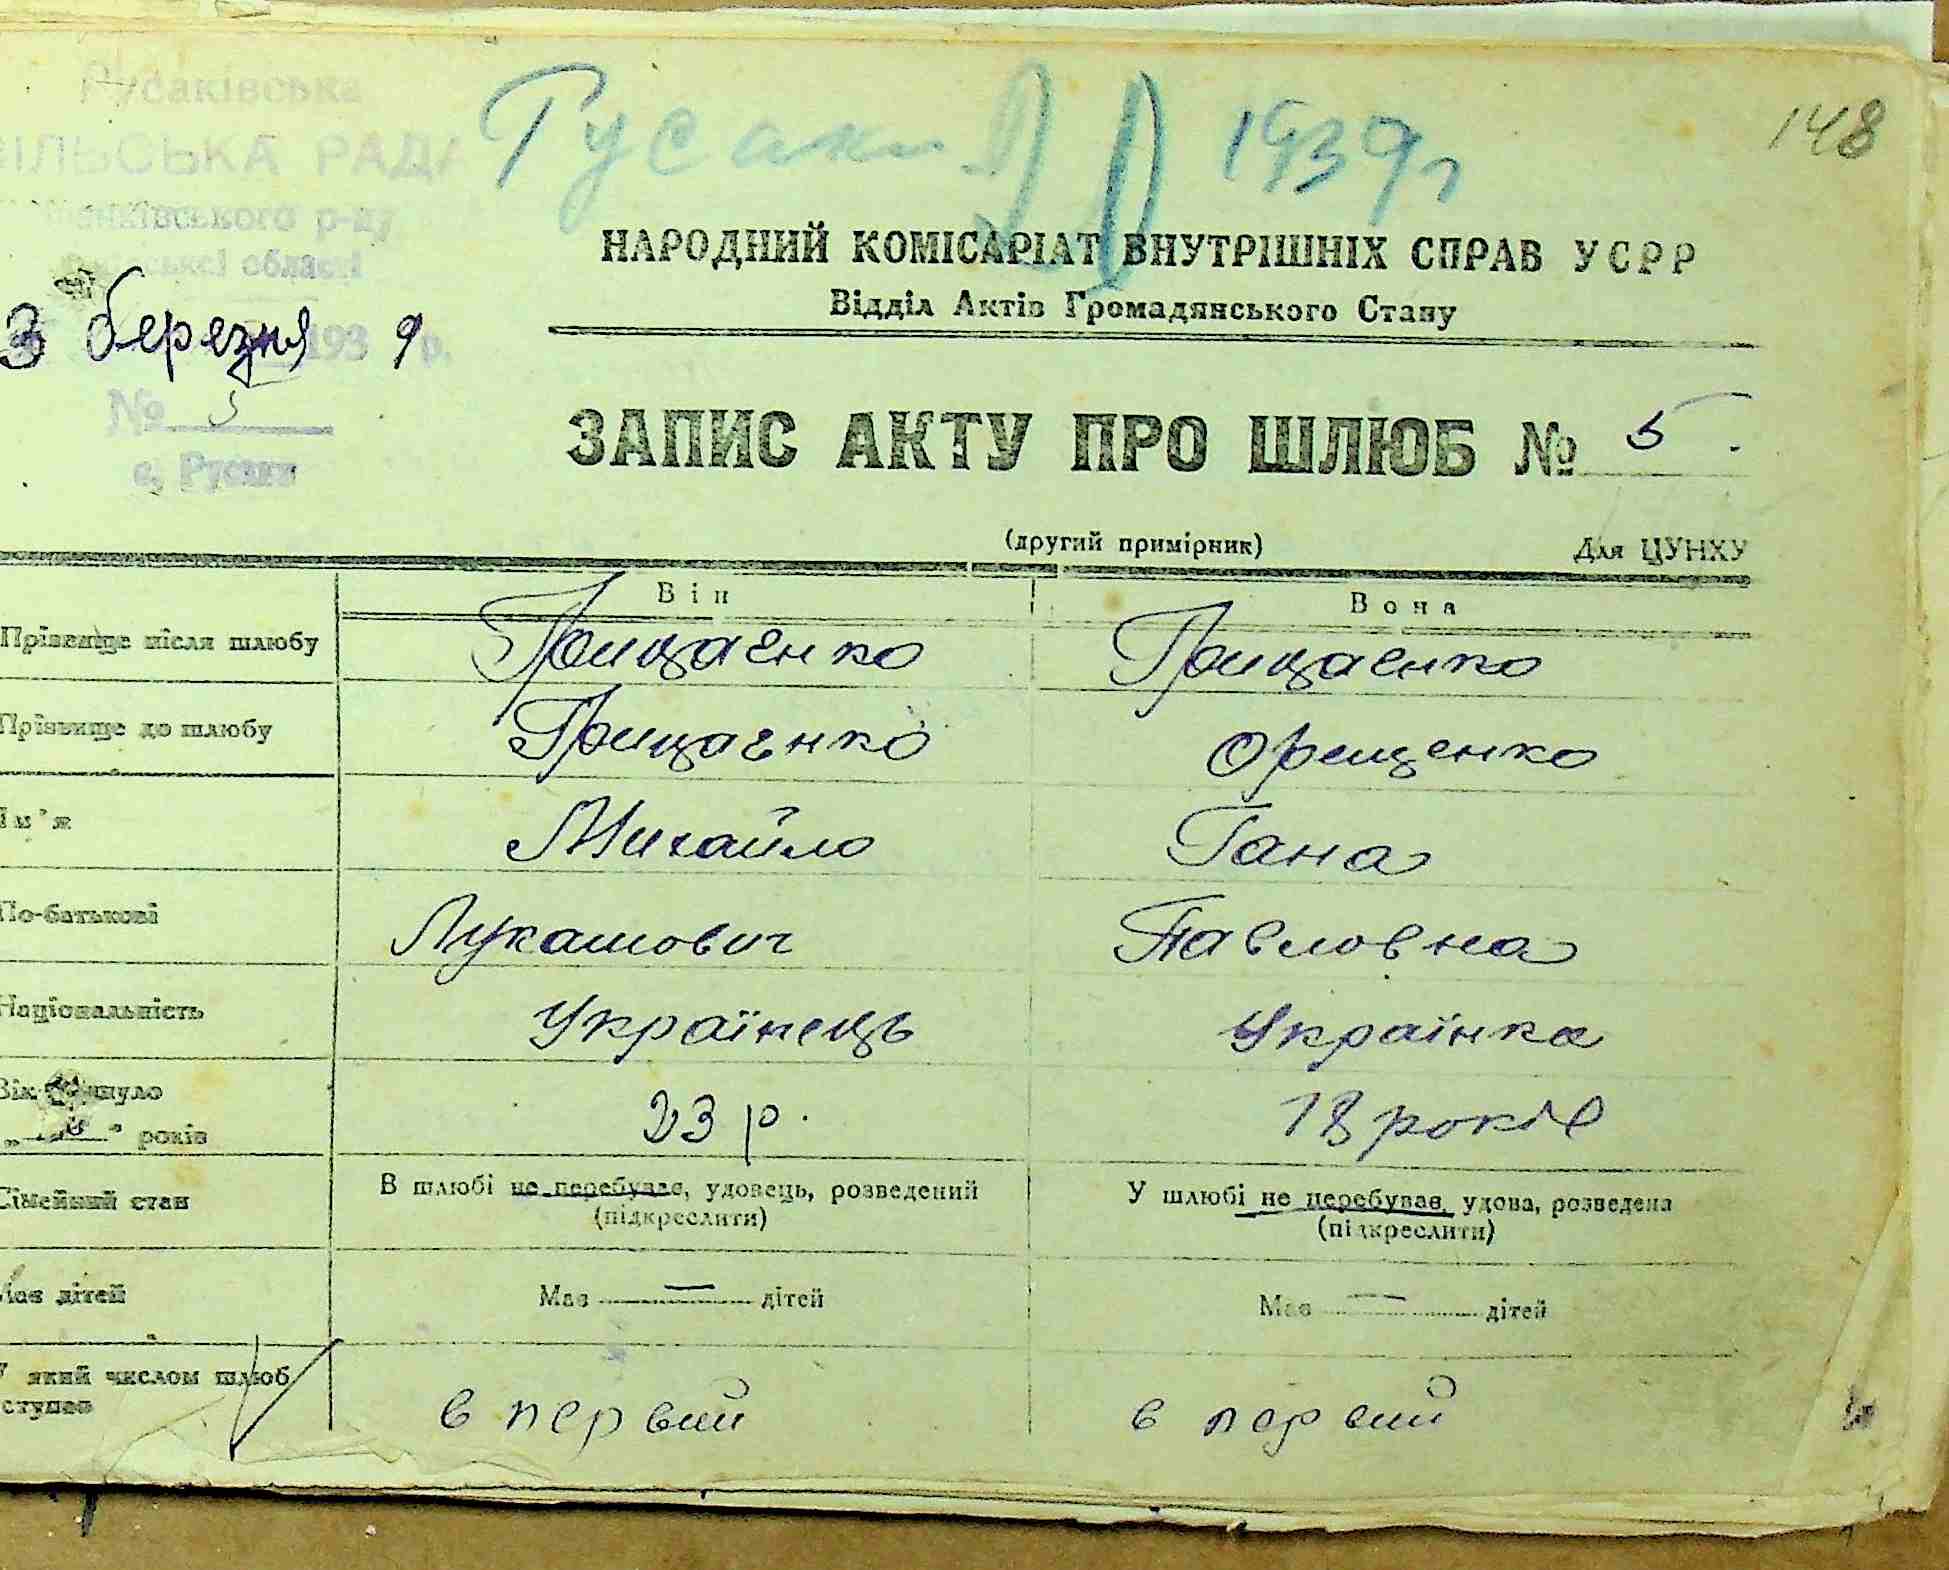 Русаківська
СІЛЬСЬКА РАДА
р-ну
області
Русаки 1939 г
148
НАРОДНИЙ КОМІСАРІАТ ВНУТРІШНІХ СПРАВ УСРР
Відділ Актів Громадянського Стану
3 березня 1939 р.
№ 5
с. Русаки
ЗАПИС АКТУ ПРО ШЛЮБ № 5.
(другий примірник) Для ЦУНХУ
Він Вона
Прізвище після шлюбу Грищаенко Грищаенко
Прізвище до шлюбу Грищаенко Орещенко
Ім'я Михайло Гана
По-батькові Лукашович Павловна
Національність Українець Українка
Вік минуло
„ " років 23 р. 18 років
Сімейний стан В шлюбі не перебував, удовець, розведений У шлюбі не перебував, удова, розведена
(підкреслити) (підкреслити)
Має дітей Має — дітей Має — дітей
У який числом шлюб
вступає в первий в первий